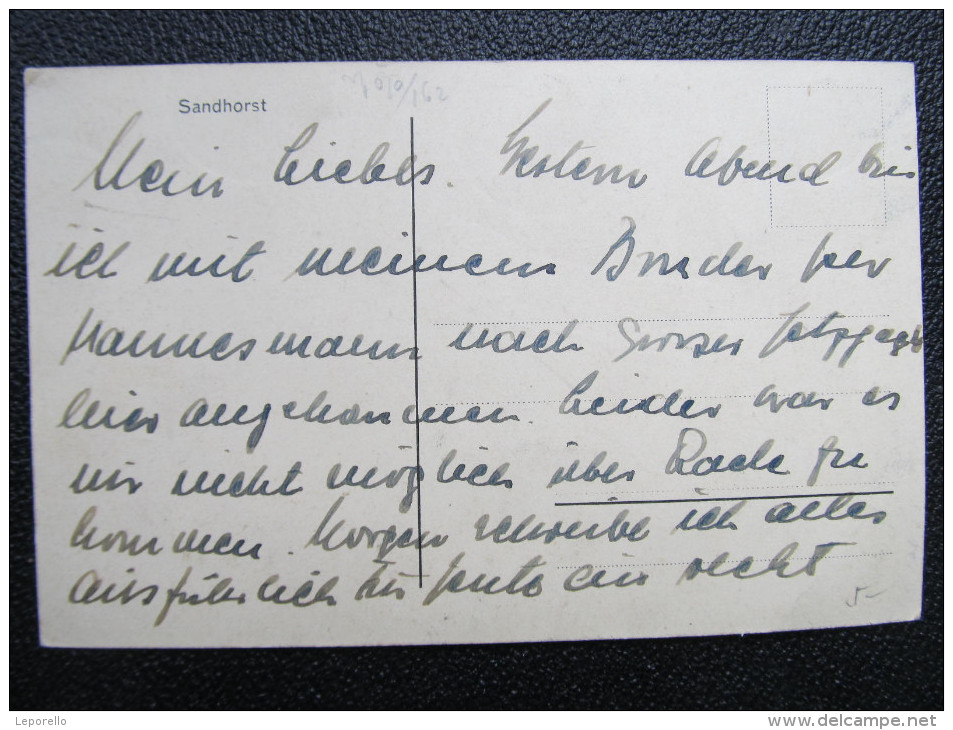 Sandhorst
Mein Liebes. Gestern Abend bin
ich mit meinem Bruder per
Hannesmann nach Grosser
hier angekommen. Leider war es
mir nicht möglich über Rade zu
kommen. Morgen schreibe ich alles
ausführlich für heute ein recht
5-
Leporello
www.delcampe.net